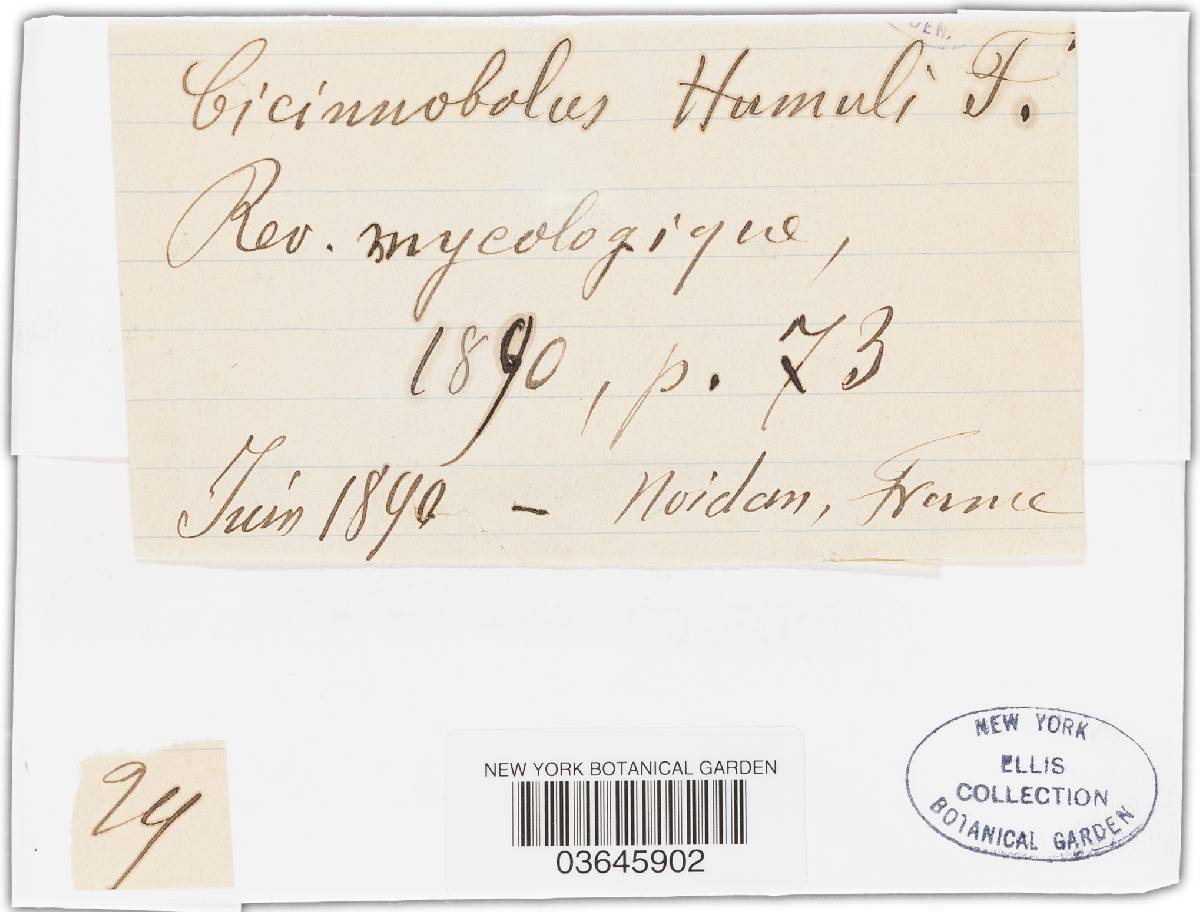 DEN.
Cicinnobolus Humuli F.
Rev. mycologique,
1890, p. 73
Juin 1890 - Noidan, France
NEW YORK BOTANICAL GARDEN
03645902
NEW YORK
ELLIS
COLLECTION
BOTANICAL GARDEN